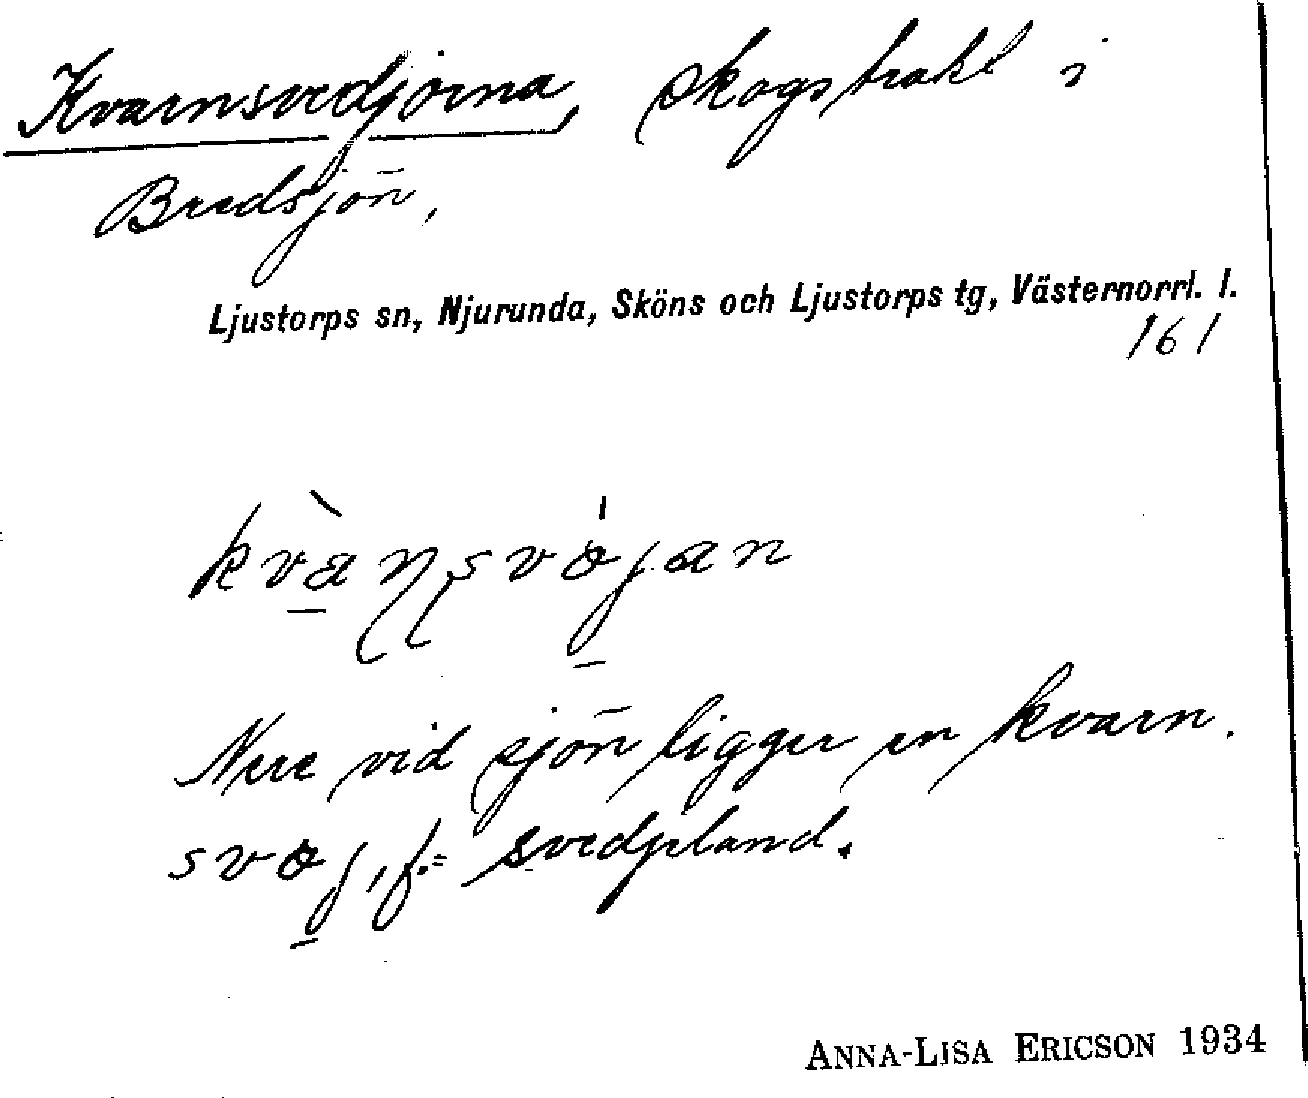 Kvarnsvedjorna, skogstrakt i
Bredsjön,
Ljustorps sn, Njurunda, Sköns och Ljustorps tg, Västernorrl. l.
161
Nere vid sjön ligger en kvarn.
f. = svedjeland.
ANNA-LISA ERICSON 1934